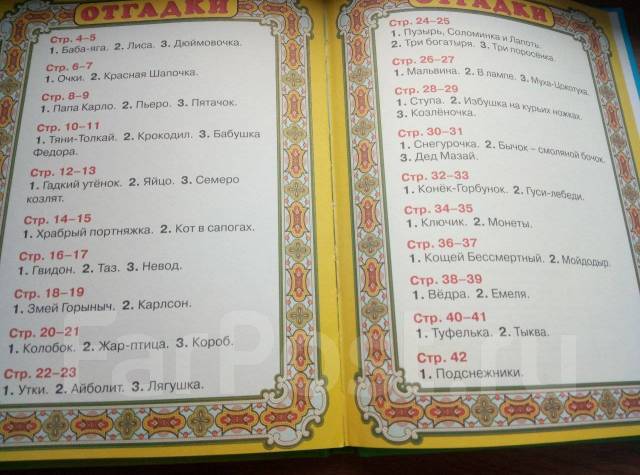 ОТГАДКИ
Стр. 4–5
1. Баба-яга. 2. Лиса. 3. Дюймовочка.
Стр. 6–7
1. Очки. 2. Красная Шапочка.
Стр. 8–9
1. Папа Карло. 2. Пьеро. 3. Пятачок.
Стр. 10–11
1. Тяни-Толкай. 2. Крокодил. 3. Бабушка
Федора.
Стр. 12–13
1. Гадкий утёнок. 2. Яйцо. 3. Семеро
козлят.
Стр. 14–15
1. Храбрый портняжка. 2. Кот в сапогах.
Стр. 16–17
1. Гвидон. 2. Таз. 3. Невод.
Стр. 18–19
1. Змей Горыныч. 2. Карлсон.
Стр. 20–21
1. Колобок. 2. Жар-птица. 3. Короб.
Стр. 22–23
1. Утки. 2. Айболит. 3. Лягушка.
ОТГАДКИ
Стр. 24–25
1. Пузырь, Соломинка и Лапоть.
2. Три богатыря. 3. Три поросёнка.
Стр. 26–27
1. Мальвина. 2. В лампе. 3. Муха-Цокотуха.
Стр. 28–29
1. Ступа. 2. Избушка на курьих ножках.
3. Козлёночка.
Стр. 30–31
1. Снегурочка. 2. Бычок – смоляной бочок.
3. Дед Мазай.
Стр. 32–33
1. Конёк-Горбунок. 2. Гуси-лебеди.
Стр. 34–35
1. Ключик. 2. Монеты.
Стр. 36–37
1. Кощей Бессмертный. 2. Мойдодыр.
Стр. 38–39
1. Вёдра. 2. Емеля.
Стр. 40–41
1. Туфелька. 2. Тыква.
Стр. 42
1. Подснежники.
FarPost.ru